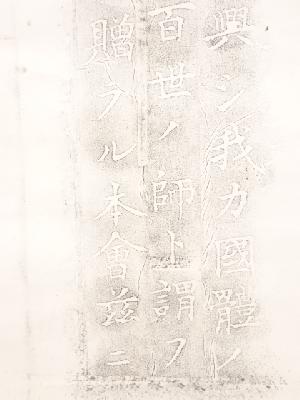 興シ我カ國體ノ
百世ノ師ト謂フ
贈ラル本會茲ニ